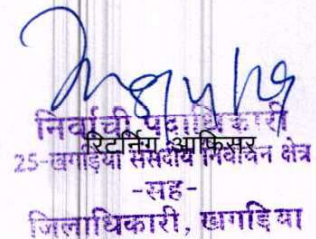 निर्वाची पदाधिकारी
रिटर्निंग आफिसर
25-खगड़िया संसदीय निर्वाचन क्षेत्र
-सह-
जिलाधिकारी, खगड़िया